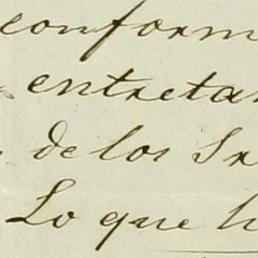 conform
entreta
de los Sr
Lo que h